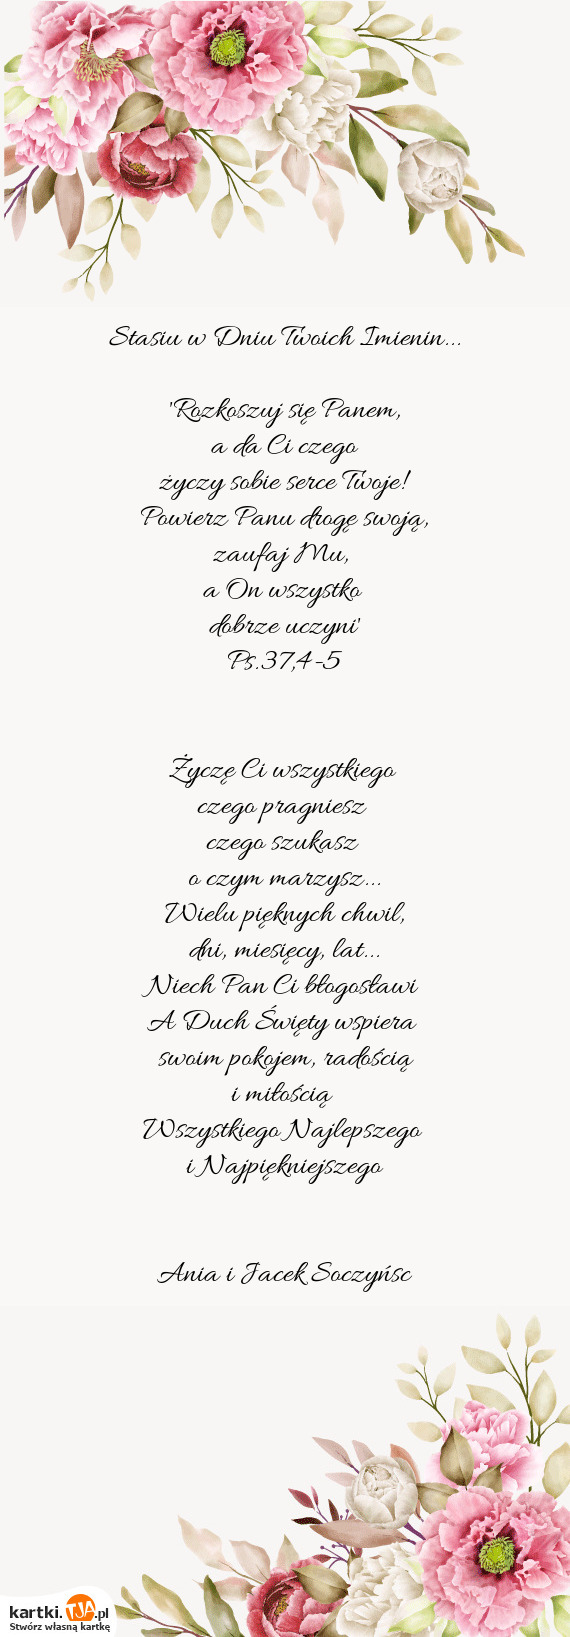 Stasiu w Dniu Twoich Imienin...
'Rozkoszuj się Panem,
a da Ci czego
życzy sobie serce Twoje!
Powierz Panu drogę swoją,
zaufaj Mu,
a On wszystko
dobrze uczyni'
Ps.37,4-5
Życzę Ci wszystkiego
czego pragniesz
czego szukasz
o czym marzysz...
Wielu pięknych chwil,
dni, miesięcy, lat...
Niech Pan Ci błogosławi
A Duch Święty wspiera
swoim pokojem, radością
i miłością
Wszystkiego Najlepszego
i Najpiękniejszego
Ania i Jacek Soczyńsc
kartki.TJA.pl
Stwórz własną kartkę